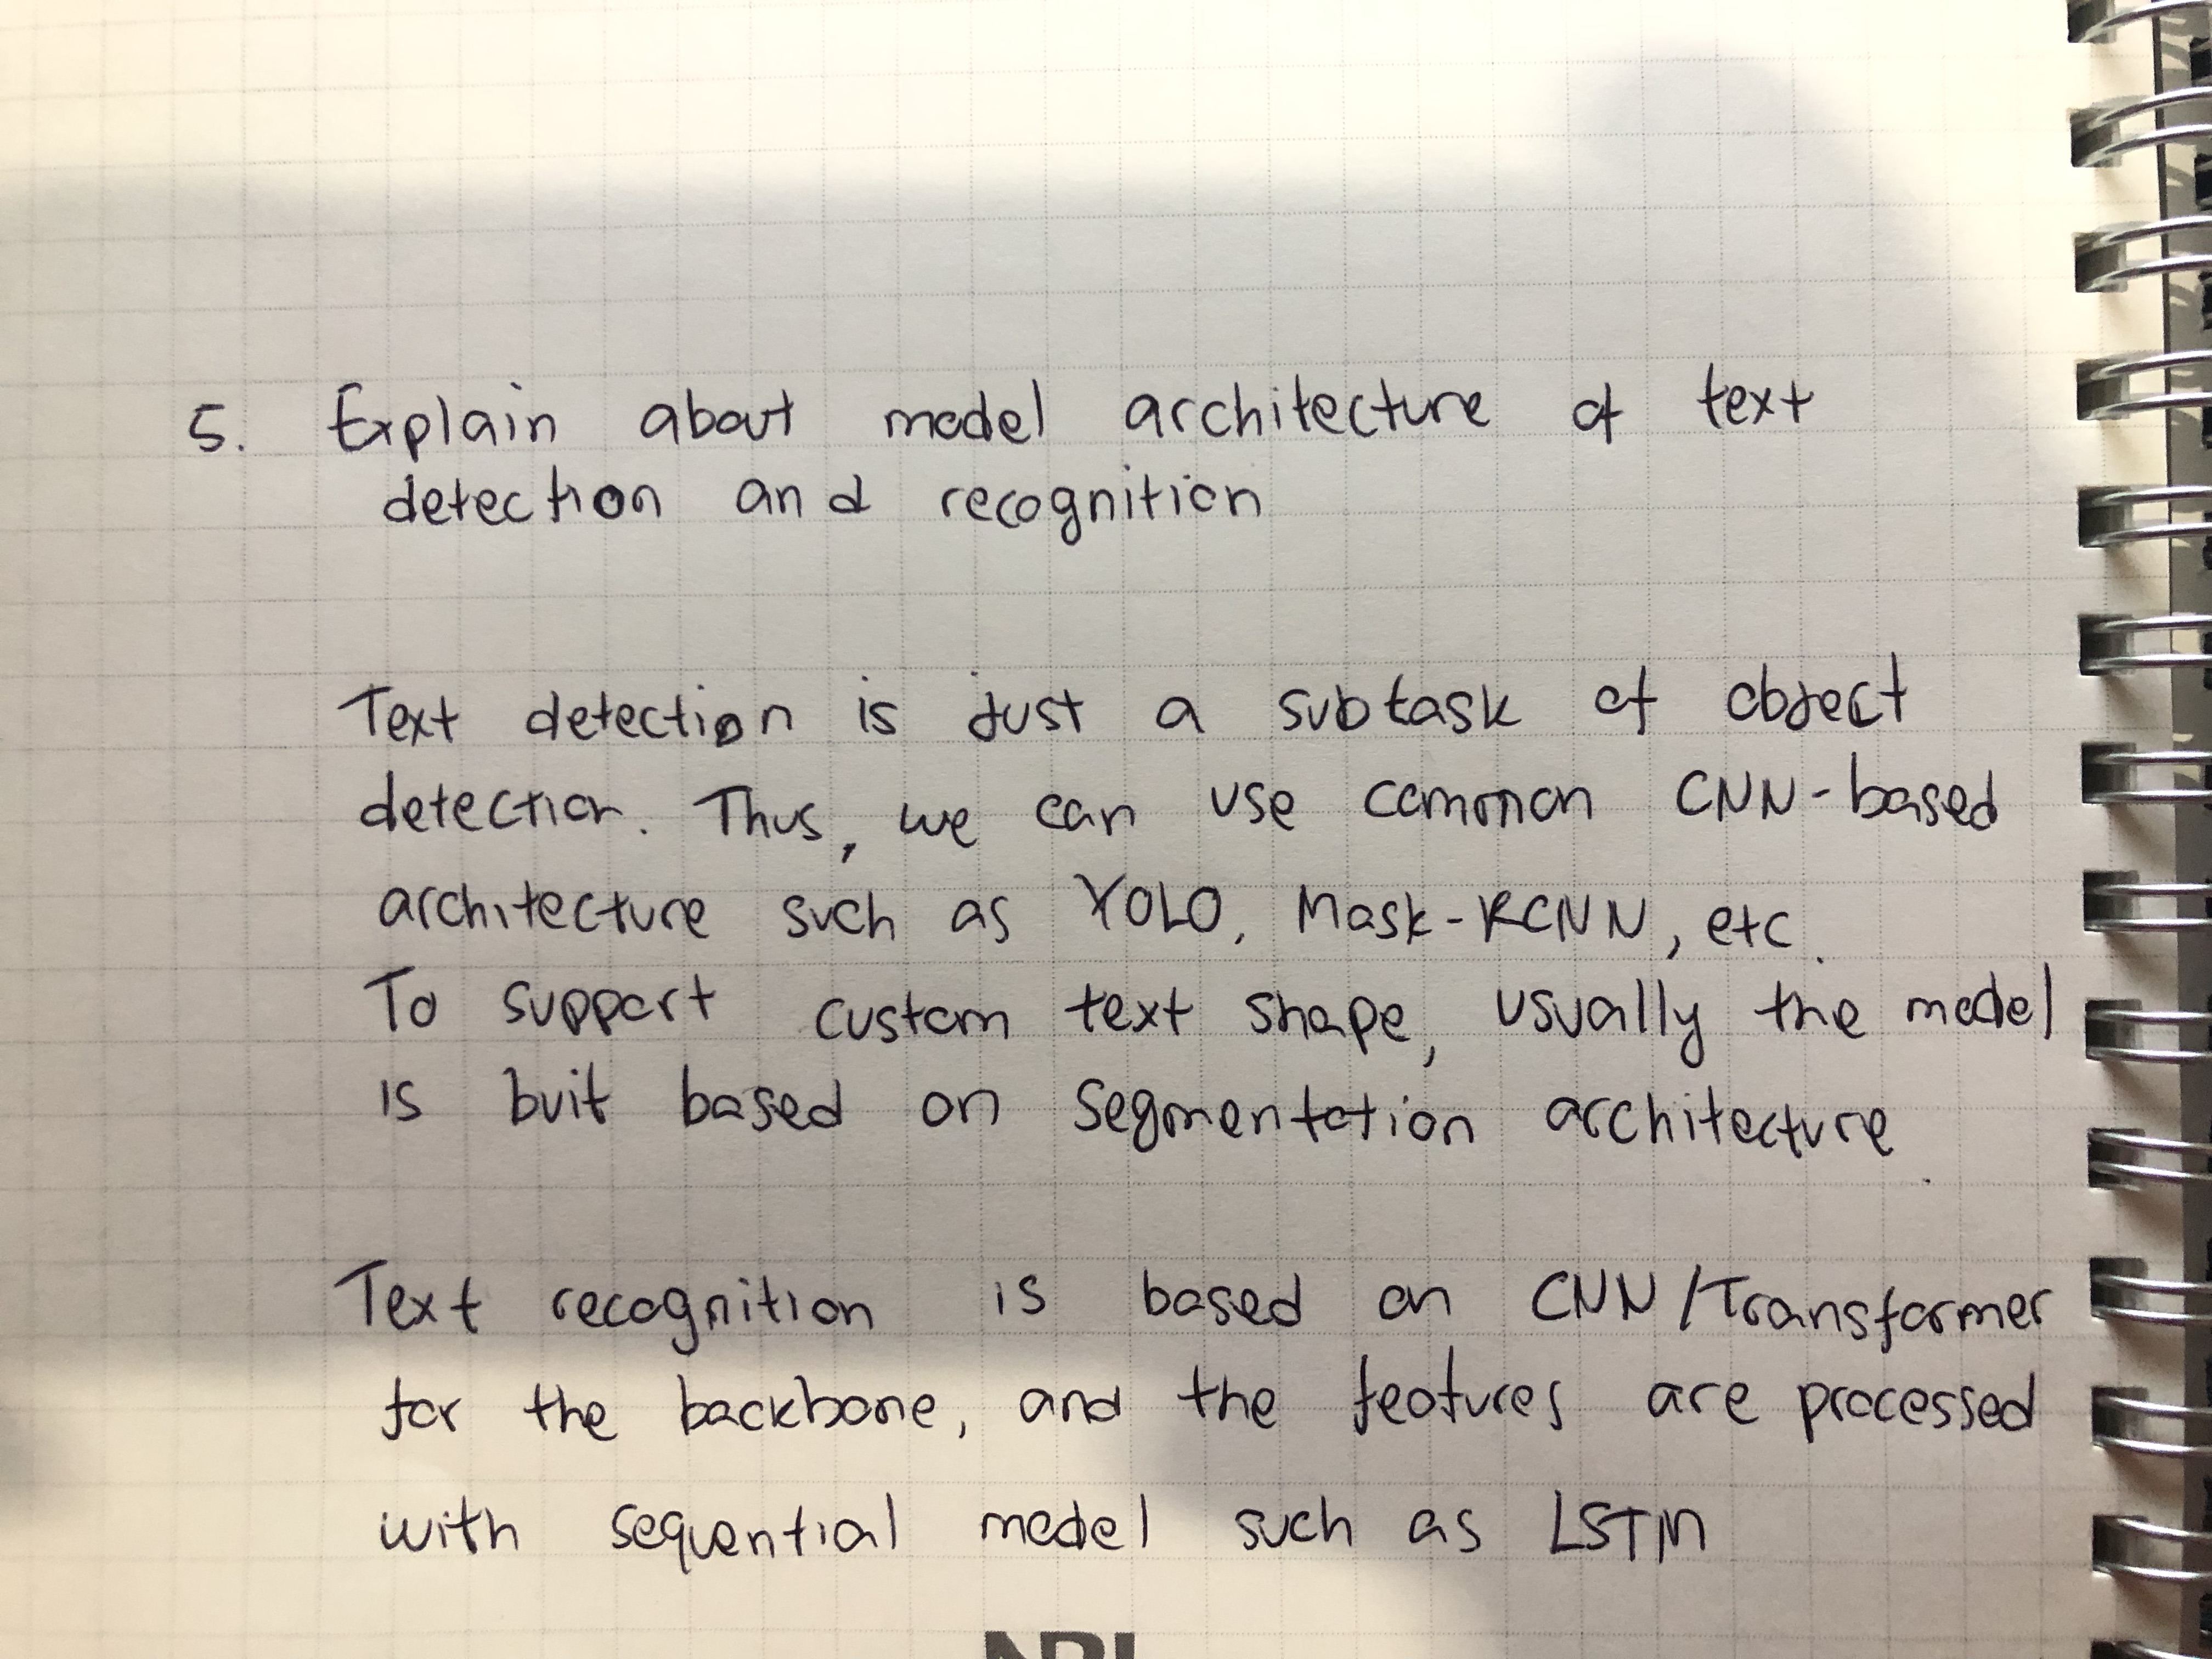 5. Explain about model architecture of text
detection and recognition
Text detection is just a subtask of object
detection. Thus, we can use common CNN-based
architecture such as YOLO, Mask-RCNN, etc.
To support custom text shape, usually the model
is buit based on segmentation architecture.
Text recognition is based on CNN/Transformer
for the backbone, and the features are processed
with sequential model such as LSTM